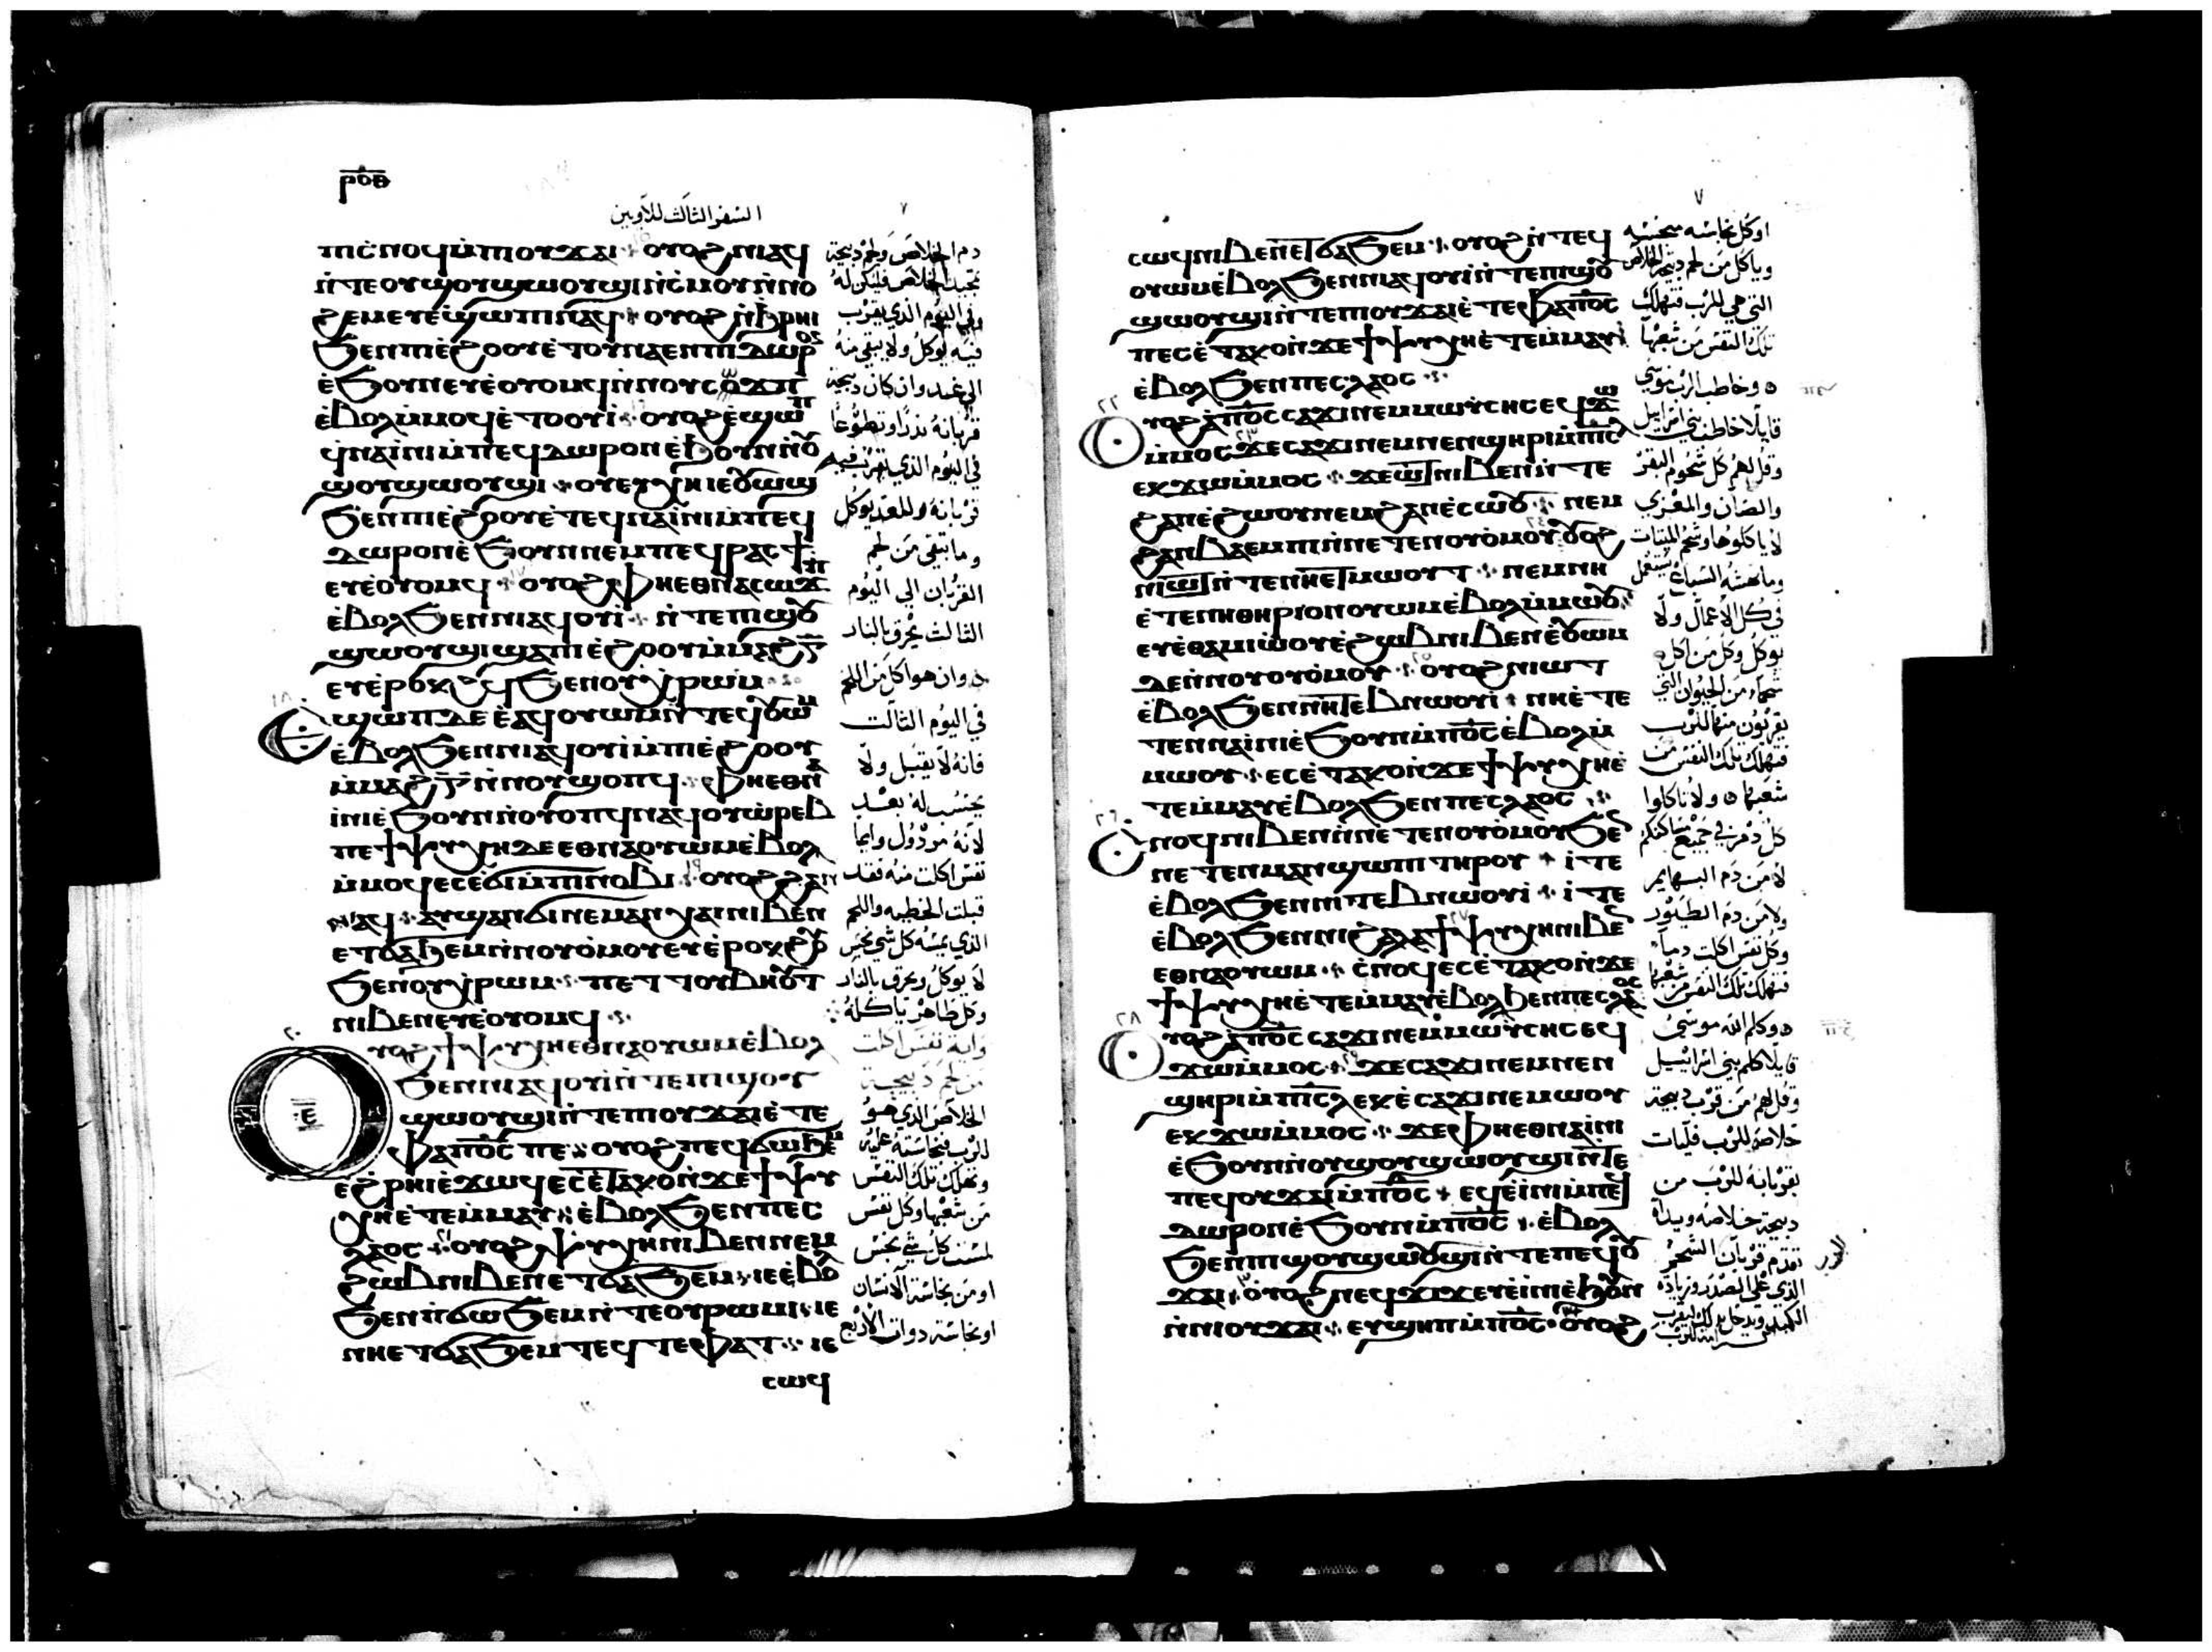 ⲣⲟⲑ
السفر الثالث للاويين
ⲡⲓⲥⲛⲟϥ ⲙ̀ⲡⲟⲩϫⲁⲓ ⲟⲩⲟϩ ⲛⲓⲁϥ
ⲛ̀ⲧⲉ ⲟⲩϣⲟⲩϣⲱⲟⲩϣⲓ ⲛ̀ⲥⲙⲟⲩ ⲛ̀ⲛⲟ
ϩⲉⲙ ⲉⲩⲉ̀ϣⲱⲡⲓ ⲛⲁϥ ⲟⲩⲟϩ ⲛ̀ϧⲣⲏⲓ
ϧⲉⲛ ⲡⲓⲉ̀ϩⲟⲟⲩ ⲉ̀ⲧⲟⲩⲛⲁⲉⲛ ⲡⲓⲇⲱⲣⲟⲛ
ⲉ̀ϧⲟⲩⲛ ⲉⲩⲉ̀ⲟⲩⲟⲙϥ ⲛ̀ⲛⲟⲩⲥⲱϫⲡ
ⲉ̀ⲃⲟⲗ ⲙ̀ⲙⲟϥ ⲉ̀ⲧⲟⲟⲩⲓ̀ ⲟⲩⲟϩ ⲉ̀ϣⲱⲡ
ϥⲛⲁⲓ̀ⲛⲓ ⲙ̀ⲡⲉϥⲇⲱⲣⲟⲛ ⲉ̀ϧⲟⲩⲛ ⲛ̀ⲟⲩ
ϣⲟⲩϣⲱⲟⲩϣⲓ ⲟⲩⲉⲩⲭⲏ ⲓⲉ ⲟⲩⲱϣ
ϧⲉⲛ ⲡⲓⲉ̀ϩⲟⲟⲩ ⲉ̀ⲧⲉϥⲛⲁⲓ̀ⲛⲓ ⲙ̀ⲡⲉϥ
ⲇⲱⲣⲟⲛ ⲉ̀ϧⲟⲩⲛ ⲛⲉⲙ ⲡⲉϥⲣⲁⲥϯ
ⲉⲩⲉ̀ⲟⲩⲟⲙϥ ⲟⲩⲟϩ ⲫⲏⲉⲑⲛⲁⲥⲱϫⲡ
ⲉ̀ⲃⲟⲗ ϧⲉⲛ ⲛⲓⲁϥⲟⲩⲓ̀ ⲛ̀ⲧⲉ ⲡⲓϣⲟⲩ
ϣⲱⲟⲩϣⲓ ϣⲁ ⲡⲓⲉ̀ϩⲟⲟⲩ ⲙ̀ⲙⲁϩⲅ̅
ⲉⲩⲉ̀ⲣⲟⲕϩϥ ϧⲉⲛ ⲟⲩⲭⲣⲱⲙ
ⲉϣⲱⲡ ⲇⲉ ⲉ̀ⲁϥⲟⲩⲱⲙ ⲛ̀ⲧⲉϥⲟⲩⲱⲙ
ⲉ̀ⲃⲟⲗ ϧⲉⲛ ⲛⲓⲁϥⲟⲩⲓ̀ ⲙ̀ⲡⲓⲉ̀ϩⲟⲟⲩ
ⲙ̀ⲙⲁϩⲅ̅ ⲛ̀ⲛⲟⲩϣⲟⲡϥ ⲫⲏⲉⲑⲛⲁ
ⲓ̀ⲛⲓ ⲉ̀ϧⲟⲩⲛ ⲛ̀ⲛⲟⲩⲟⲡϥ ⲛⲁϥ ⲟⲩⲱ̀ⲣⲉⲃ
ⲡⲉ ϯⲯⲩⲭⲏ ⲇⲉ ⲉⲑⲛⲁⲟⲩⲱⲙ ⲉ̀ⲃⲟⲗ
ⲙ̀ⲙⲟϥ ⲉⲥⲉ̀ϭⲓ ⲙ̀ⲡⲓⲛⲟⲃⲓ ⲟⲩⲟϩ ϩⲁⲛ
ⲁϥ ⲁⲩϣⲁⲛϭⲓ ⲛⲉⲙ ⲁⲛⲭⲁⲓ ⲛⲓⲃⲉⲛ
ⲉⲧϭⲁϧⲉⲙ ⲛ̀ⲛⲟⲩⲟ̀ⲙⲟⲩ ⲉⲩⲉ̀ⲣⲟⲕϩⲟⲩ
ϧⲉⲛ ⲟⲩⲭⲣⲱⲙ ⲡⲉⲧⲧⲟⲩⲃⲏⲟⲩⲧ
ⲛⲓⲃⲉⲛ ⲉⲩⲉ̀ⲟⲩⲟⲙϥ
ⲟⲩⲟϩ ϯⲯⲩⲭⲏ ⲉⲑⲛⲁⲟⲩⲱⲙ ⲉ̀ⲃⲟⲗ
ϧⲉⲛ ⲛⲓⲁϥⲟⲩⲓ̀ ⲛ̀ⲧⲉ ⲡⲓϣⲟⲩ
ϣⲱⲟⲩϣⲓ ⲛ̀ⲧⲉ ⲡⲟⲩϫⲁⲓ ⲉ̀ⲧⲉ
ⲫⲁ ⲡⲟ̅ⲥ̅ ⲡⲉ ⲟⲩⲟϩ ⲡⲉϥϭⲱϧⲉⲙ
ⲉ̀ϩⲣⲏⲓ ⲉ̀ϫⲱϥ ⲉⲥⲉ̀ⲧⲁⲕⲟ ⲛ̀ϫⲉ ϯⲯⲩ
ⲭⲏ ⲉ̀ⲧⲉⲙ̀ⲙⲁⲩ ⲉ̀ⲃⲟⲗ ϧⲉⲛ ⲡⲉⲥ
ⲗⲁⲟⲥ ⲟⲩⲟϩ ⲯⲩⲭⲏ ⲛⲓⲃⲉⲛ ⲛⲉⲙ
ϩⲱⲃ ⲛⲓⲃⲉⲛ ⲉⲧϭⲁϧⲉⲙ ⲓⲉ ⲉ̀ⲃⲟⲗ
ϧⲉⲛ ⲡ̀ϭⲱϧⲉⲙ ⲛ̀ⲧⲉ ⲟⲩⲣⲱⲙⲓ ⲓⲉ
ⲛⲏⲉⲧϭⲁϧⲉⲙ ⲧⲉϥⲧⲉⲫⲁⲧ ⲓⲉ
ⲥⲱϥ
دم الخلاص ولحم ذبيحة
تمجيد الخلاص فليكن له
وفي اليوم الذي يقرب
فيه يوكل ولا يبقى منه
الى غد وان كان ذبيحة
قربانه نذرا وتطوعا
في اليوم الذي يقرب فيه
قربانه وللغد يوكل
وما تبقى من لحم
القربان الى اليوم
الثالث يحرق بالنار
وان هو اكل من اللحم
في اليوم الثالث
فانه لا يقبل ولا
يحتسب له بعد
لانه مرذول وايما
نفس اكلت منه فقد
قبلت الخطيه واللحم
الذي يمسه كل شي نجس
لا يوكل ويحرق بالنار
وكل طاهر ياكله
واية نفس اكلت
من لحم ذبيحة
الخلاص الذي هو
للرب فنجاسته عليه
وتهلك تلك النفس
من شعبها وكل نفس
لمست كل شي نجس
او من نجاسة الانسان
او نجاسة ذوات الاربع
ⲥⲱϥ ⲛⲓⲃⲉⲛ ⲉⲧϭⲁϧⲉⲙ ⲟⲩⲟϩ ⲛ̀ⲧⲉϥ
ⲟⲩⲱⲙ ⲉ̀ⲃⲟⲗ ϧⲉⲛ ⲛⲓⲁϥⲟⲩⲓ̀ ⲛ̀ⲧⲉ ⲡⲓϣⲟⲩ
ϣⲱⲟⲩϣⲓ ⲛ̀ⲧⲉ ⲡⲟⲩϫⲁⲓ ⲉ̀ⲧⲉ ⲫⲁ ⲡⲟ̅ⲥ̅
ⲡⲉ ⲉⲥⲉ̀ⲧⲁⲕⲟ ⲛ̀ϫⲉ ϯⲯⲩⲭⲏ ⲉ̀ⲧⲉⲙ̀ⲙⲁⲩ
ⲉ̀ⲃⲟⲗ ϧⲉⲛ ⲡⲉⲥⲗⲁⲟⲥ
ⲟⲩⲟϩ ⲁ̀ ⲡⲟ̅ⲥ̅ ⲥⲁϫⲓ ⲛⲉⲙ ⲙⲱⲩⲥⲏⲥ ⲉϥϫⲱ
ⲙ̀ⲙⲟⲥ ϫⲉ ⲥⲁϫⲓ ⲛⲉⲙ ⲛⲉⲛϣⲏⲣⲓ ⲙ̀ⲡⲓ̅ⲥ̅ⲗ̅
ⲉⲕϫⲱ ⲙ̀ⲙⲟⲥ ϫⲉ ⲱⲧ ⲛⲓⲃⲉⲛ ⲛ̀ⲧⲉ
ϩⲁⲛⲉ̀ϩⲱⲟⲩ ⲛⲉⲙ ϩⲁⲛⲉ̀ⲥⲱⲟⲩ ⲛⲉⲙ
ϩⲁⲛⲃⲁⲉⲙⲡⲓ ⲛ̀ⲛⲉⲧⲉⲛⲟⲩⲟ̀ⲙⲟⲩ ⲟⲩⲟϩ
ⲛⲓⲱⲧ ⲛ̀ⲧⲉ ⲛⲏⲉⲧⲙⲱⲟⲩⲧ ⲛⲉⲙ ⲛⲏ
ⲉ̀ⲧⲉ ⲛⲓⲑⲏⲣⲓⲟⲛ ⲟⲩⲱⲙ ⲉ̀ⲃⲟⲗ ⲙ̀ⲙⲱⲟⲩ
ⲉⲩⲉ̀ⲑⲁⲙⲓⲱⲟⲩ ⲉ̀ϩⲱⲃ ⲛⲓⲃⲉⲛ ⲉ̀ⲟⲩⲱⲙ
ⲇⲉ ⲛ̀ⲛⲟⲩⲟⲩⲟ̀ⲙⲟⲩ ⲟⲩⲟϩ ⲛⲓⲱⲧ
ⲉ̀ⲃⲟⲗ ϧⲉⲛ ⲛⲓⲧⲉⲃⲛⲱⲟⲩⲓ̀ ⲛⲏ ⲉ̀ⲧⲉ
ⲧⲉⲛⲛⲁⲓ̀ⲛⲓ ⲉ̀ϧⲟⲩⲛ ⲙ̀ⲡⲟ̅ⲥ̅ ⲉ̀ⲃⲟⲗ ⲙ̀
ⲙⲱⲟⲩ ⲉⲥⲉ̀ⲧⲁⲕⲟ ⲛ̀ϫⲉ ϯⲯⲩⲭⲏ ⲉ̀
ⲧⲉⲙ̀ⲙⲁⲩ ⲉ̀ⲃⲟⲗ ϧⲉⲛ ⲡⲉⲥⲗⲁⲟⲥ
ⲥⲛⲟϥ ⲛⲓⲃⲉⲛ ⲛ̀ⲛⲉⲧⲉⲛⲟⲩⲟ̀ⲙⲟⲩ ϧⲉⲛ
ⲛⲉⲧⲉⲛⲙⲁⲛϣⲱⲡⲓ ⲧⲏⲣⲟⲩ ⲓ̀ⲧⲉ
ⲉ̀ⲃⲟⲗ ϧⲉⲛ ⲛⲓⲧⲉⲃⲛⲱⲟⲩⲓ̀ ⲓ̀ⲧⲉ
ⲉ̀ⲃⲟⲗ ϧⲉⲛ ⲛⲓϩⲁⲗⲁϯ ⲯⲩⲭⲏ ⲛⲓⲃⲉⲛ
ⲉⲑⲛⲁⲟⲩⲱⲙ ⲥ̀ⲛⲟϥ ⲉⲥⲉ̀ⲧⲁⲕⲟ ⲛ̀ϫⲉ
ϯⲯⲩⲭⲏ ⲉ̀ⲧⲉⲙ̀ⲙⲁⲩ ⲉ̀ⲃⲟⲗ ϧⲉⲛ ⲡⲉⲥⲗⲁⲟⲥ
ⲟⲩⲟϩ ⲁ̀ ⲡⲟ̅ⲥ̅ ⲥⲁϫⲓ ⲛⲉⲙ ⲙⲱⲩⲥⲏⲥ ⲉϥ
ϫⲱ ⲙ̀ⲙⲟⲥ ϫⲉ ⲥⲁϫⲓ ⲛⲉⲙ ⲛⲉⲛ
ϣⲏⲣⲓ ⲙ̀ⲡⲓ̅ⲥ̅ⲗ̅ ⲉⲕⲉ̀ⲥⲁϫⲓ ⲛⲉⲙⲱⲟⲩ
ⲉⲕϫⲱ ⲙ̀ⲙⲟⲥ ϫⲉ ⲫⲏⲉⲑⲛⲁⲓ̀ⲛⲓ
ⲉ̀ϧⲟⲩⲛ ⲛ̀ⲟⲩϣⲟⲩϣⲱⲟⲩϣⲓ ⲛ̀ⲧⲉ
ⲡⲉϥⲟⲩϫⲁⲓ ⲙ̀ⲡⲟ̅ⲥ̅ ⲉϥⲉ̀ⲓ̀ⲛⲓ ⲙ̀ⲡⲉϥ
ⲇⲱⲣⲟⲛ ⲉ̀ϧⲟⲩⲛ ⲙ̀ⲡⲟ̅ⲥ̅ ⲉ̀ⲃⲟⲗ
ϧⲉⲛ ⲡⲓϣⲟⲩϣⲱⲟⲩϣⲓ ⲛ̀ⲧⲉ ⲡⲉϥⲟⲩ
ϫⲁⲓ ⲟⲩⲟϩ ⲛⲉϥϫⲓϫ ⲉⲩⲉ̀ⲓ̀ⲛⲓ ⲉ̀ϧⲟⲩⲛ
ⲛ̀ⲛⲓⲟⲩϫⲁⲓ ⲉⲩϣⲏⲡ ⲙ̀ⲡⲟ̅ⲥ̅ ⲟⲩⲟϩ
او كل نجاسه منجسه
وياكل من لحم ذبيحة الخلاص
التي هي للرب فتهلك
تلك النفس من شعبها
وخاطب الرب موسى
قايلا خاطب بني اسراييل
وقل لهم كل شحوم البقر
والضان والمعزي
لا ياكلوها وشحم الميتات
وما نهشه السباع يستعمل
في كل الاعمال ولا
يوكل وكل من اكل
شحما من الحيوان التي
يقربون منها للرب
فتهلك تلك النفس من
شعبها ولا تاكلوا
كل دم في جميع مساكنكم
لا من دم البهايم
ولا من دم الطيور
وكل نفس اكلت دما
فتهلك تلك النفس من شعبها
وكلم الله موسى
قايلا كلم بني اسراييل
وقل لهم من قرب ذبيحة
خلاصه للرب فليات
بقربانه للرب من
ذبيحة خلاصه ويداه
تقدم قربان الشحم
الذي على الصدر وزيادة